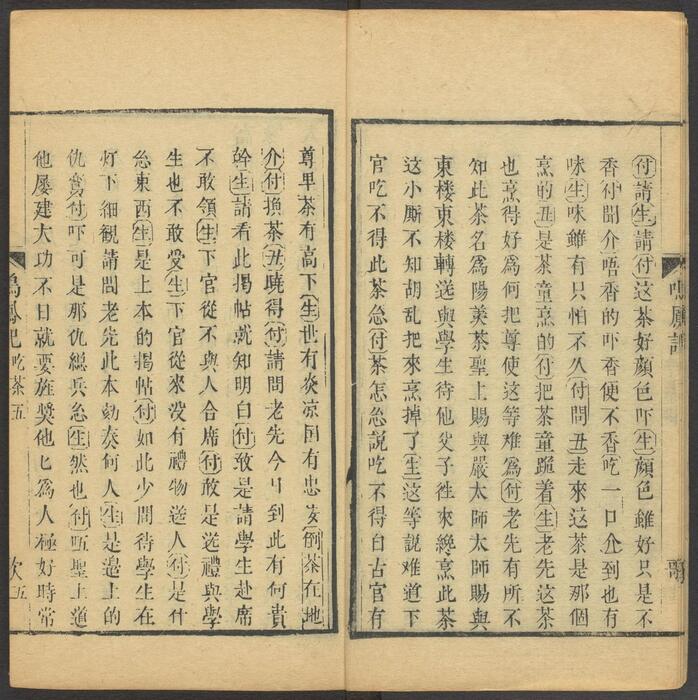 付請生請付这茶好顔色吓生顔色雖好只是不
香付聞介唔香的吓香便不香吃一口介到也有
味生味雖有只怕不久付問丑走來这茶是那個
烹的丑是茶童烹的付把茶童跪着生老先这茶
也烹得好爲何把尊使这等难爲付老先有所不
知此茶名爲陽羡茶聖上賜與嚴太師太師賜與
東楼東楼轉送與學生待他父子徃來纔烹此茶
这小厮不知胡乱把來烹掉了生这等説难道下
官吃不得此茶怎付茶怎怎説吃不得自古官有
尊卑茶有高下生世有炎凉囯有忠奸倒茶在地
介付換茶丑曉得付請問老先今日到此有何貴
幹生請看此揭帖就知明白付敢是請學生赴席
不敢領生下官從不與人合席付敢是送禮與學
生也不敢受生下官從來没有禮物送人付是什
怎東西生是上本的揭帖付如此少間待學生在
灯下細観請問老先此本劾奏何人生是邉上的
仇鸞付吓可是那仇總兵怎生然也付咂聖上道
他屡建大功不日就要旌奨他匕爲人極好時常
鳴鳳記 吃茶 五